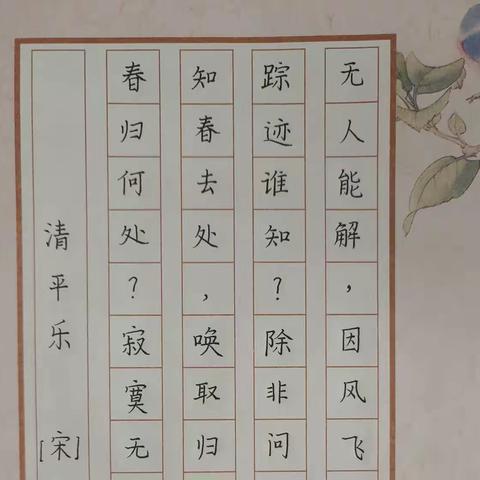 清平乐 [宋]
春归何处？寂寞无
知春去处，唤取归
踪迹谁知？除非问
无人能解，因风飞